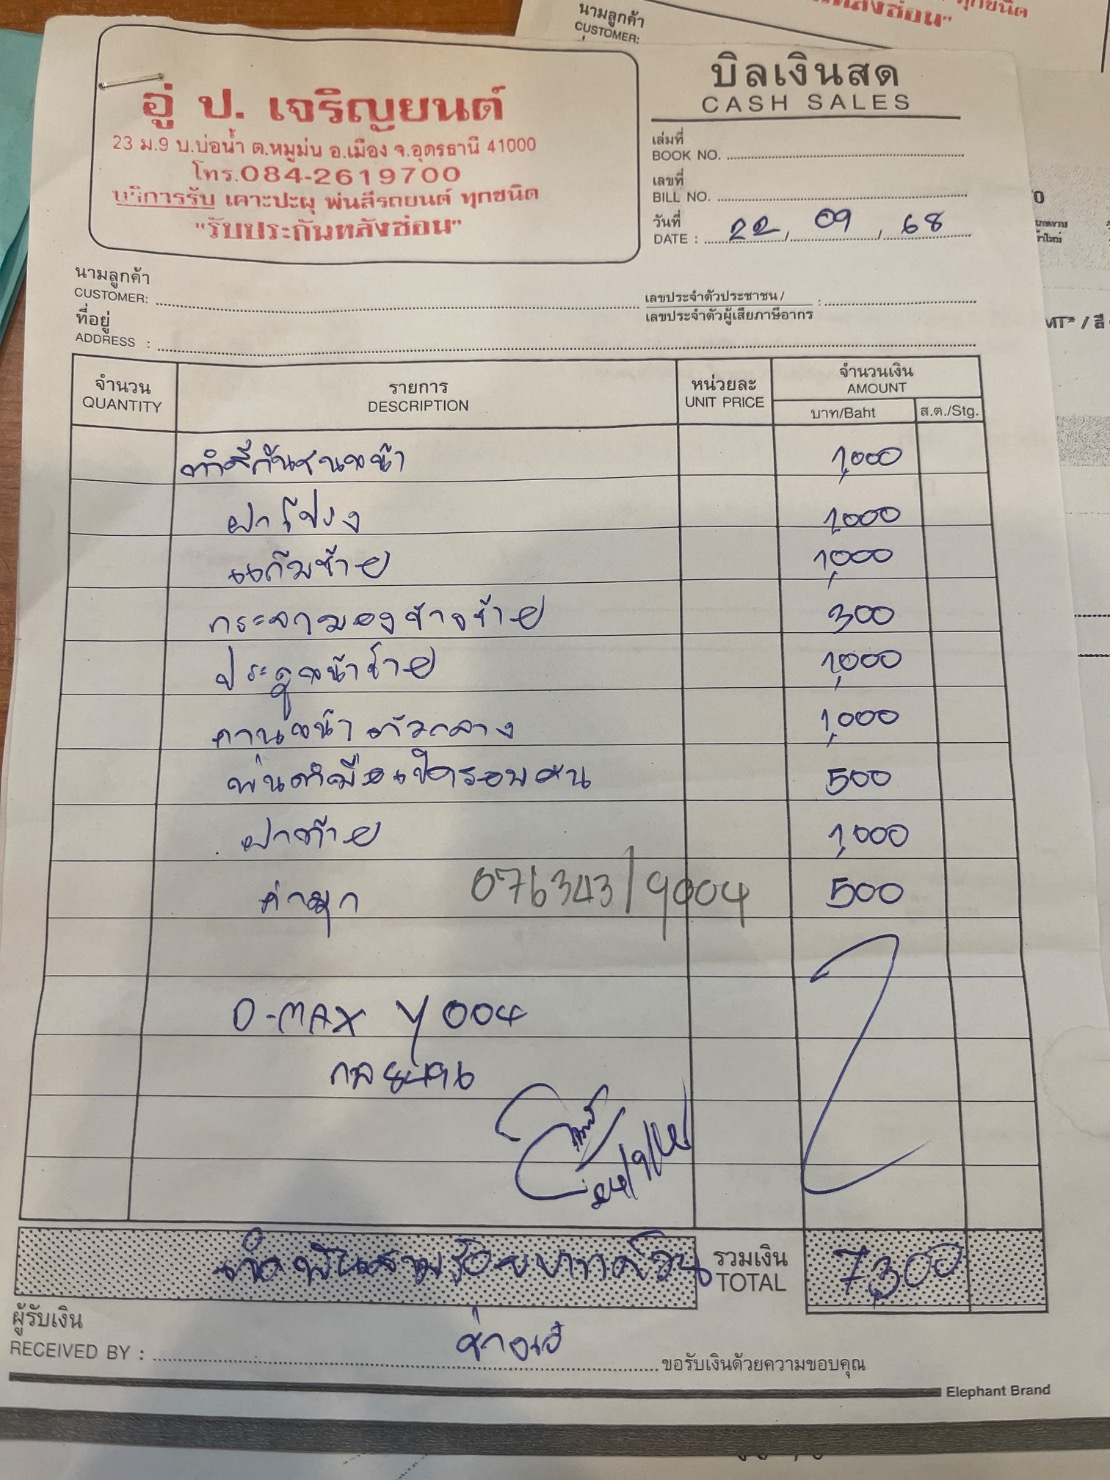 นามลูกค้า
CUSTOMER:
อู่ ป. เจริญยนต์
23 ม.9 บ.บ่อน้ำ ต.หมูม่น อ.เมือง จ.อุดรธานี 41000
โทร.084-2619700
บริการรับ เคาะปะผุ พ่นสีรถยนต์ ทุกชนิด
"รับประกันหลังซ่อม"
บิลเงินสด
CASH SALES
เล่มที่
BOOK NO.
เลขที่
BILL NO.
วันที่
DATE : 22 / 09 / 68
นามลูกค้า
CUSTOMER:
เลขประจำตัวประชาชน /
เลขประจำตัวผู้เสียภาษีอากร :
ที่อยู่
ADDRESS :
จำนวน รายการ หน่วยละ จำนวนเงิน
QUANTITY DESCRIPTION UNIT PRICE AMOUNT
บาท/Baht ส.ต./Stg.
ทำสีกันชนหน้า 1,000
ฝาโปรง 1,000
แก้มซ้าย 1,000
กระจกมองข้างซ้าย 300
ประตูหน้าซ้าย 1,000
คานหน้าตัวกลาง 1,000
พ่นดำมือเปิดรอบคัน 500
ฝาท้าย 1,000
076343/9004 500
D-MAX Y004
รวมเงิน
TOTAL 7,300
ผู้รับเงิน
RECEIVED BY : ขอรับเงินด้วยความขอบคุณ
Elephant Brand